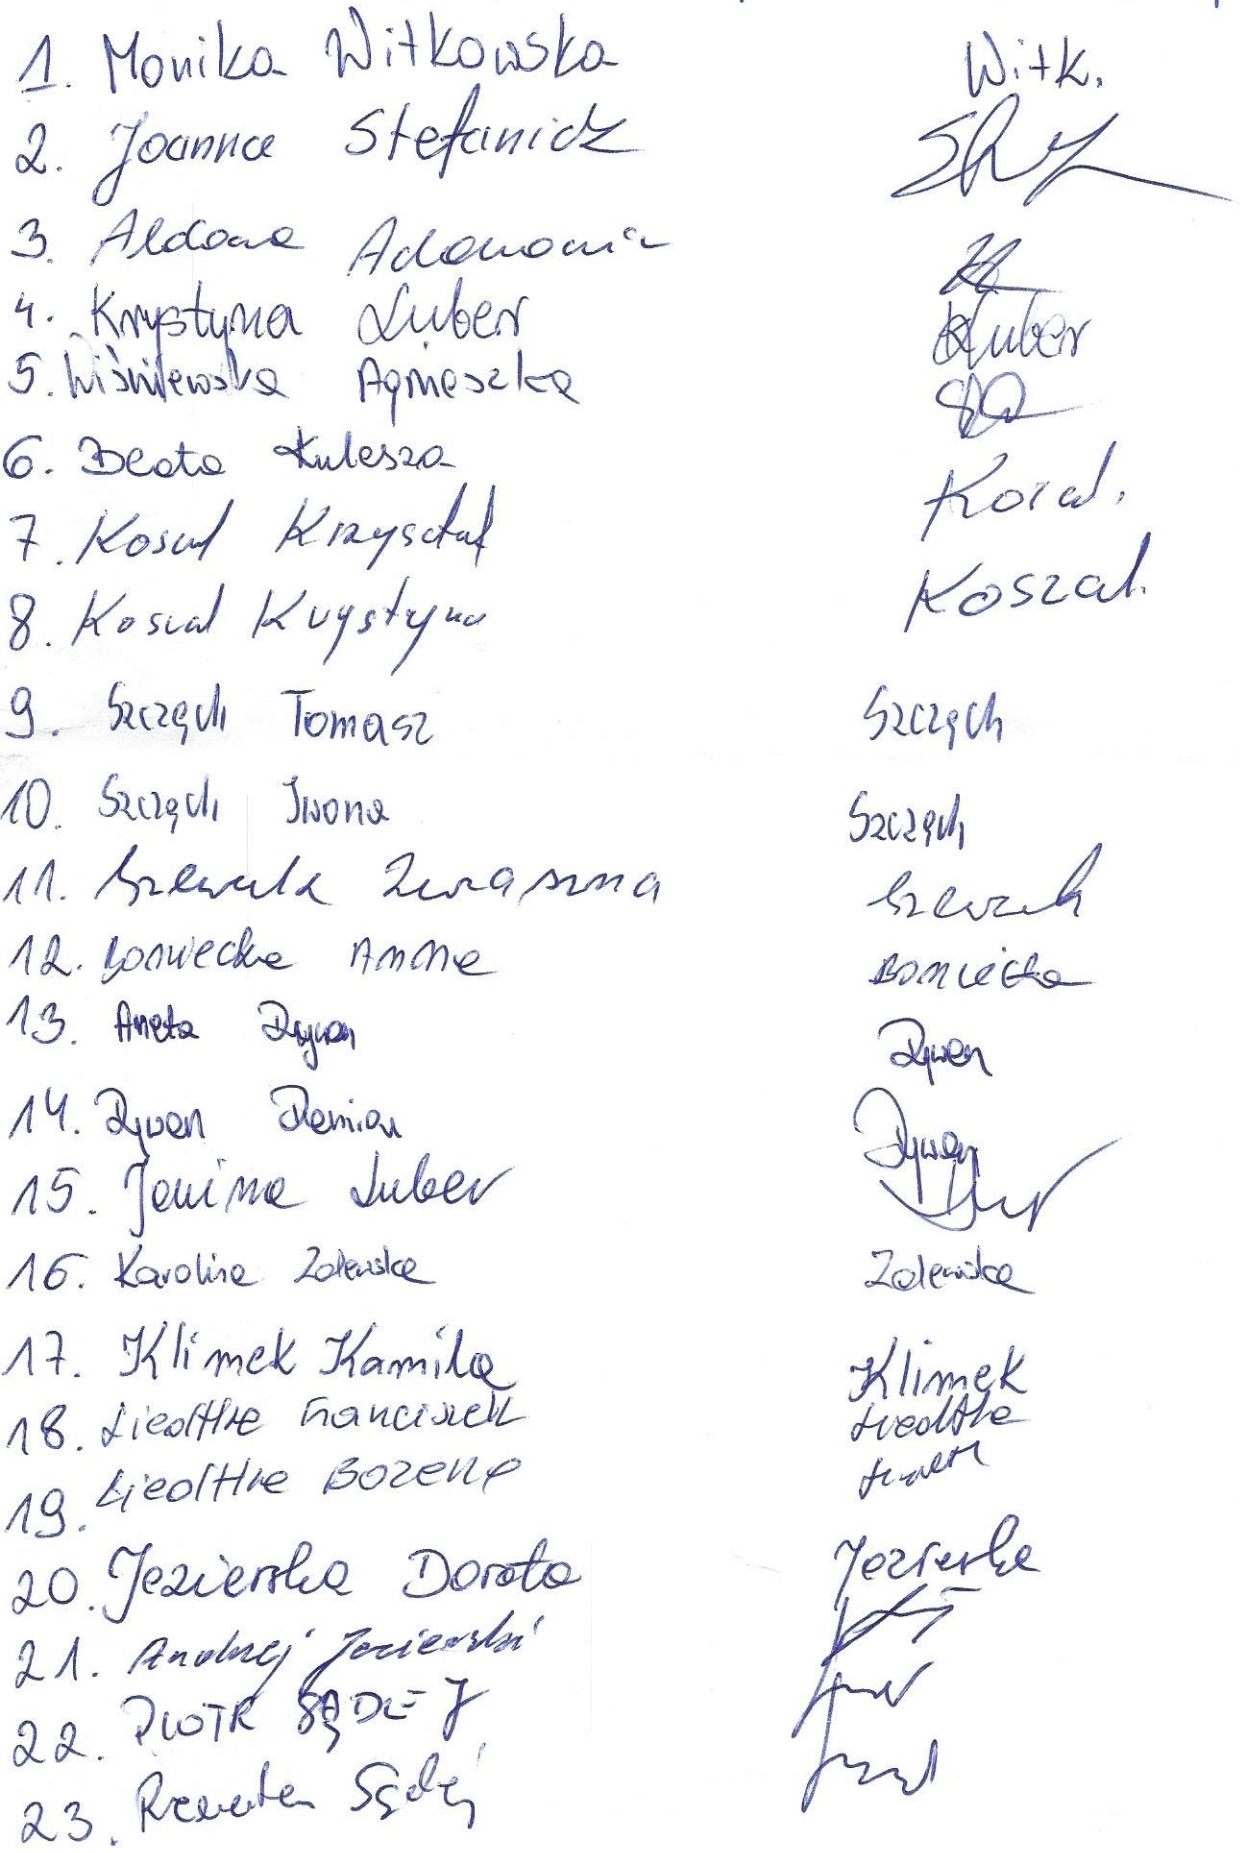 1. Monika Witkowska Witk.
2. Joanna Stefanicz
3. Aldona
4. Krystyna Luber Luber
5. Wiśniewska Agnieszka
6. Beata Kulesza
7. Koszal Krzysztof Koszal.
8. Koszal Krystyna Koszal.
9. Szczęch Tomasz Szczęch
10. Szczęch Iwona Szczęch
11. Szewczk
12. Boniecka Anna Boniecka
13. Aneta Dywan Dywan
14. Dywan Damian Dywan
15. Janina Luber
16. Karolina Zalewska Zalewska
17. Klimek Kamila Klimek
18. Liedtke Franciszek Liedtke
19. Liedtke Bożena
20. Jezierska Dorota Jezierska
21. Andrzej Jezierski
22. PIOTR SĄDEJ
23. Renata Sądej